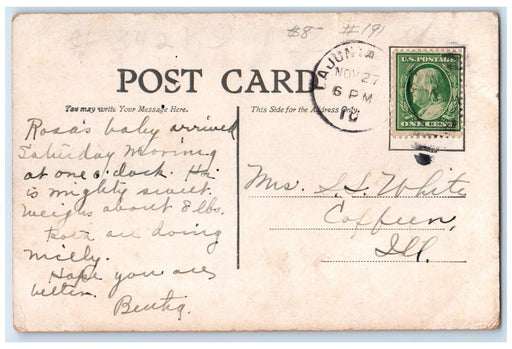 $8- #191
LAJUNTA
NOV 27
6 PM
10
U.S. POSTAGE
ONE CENT
POST CARD
You may write Your Message Here.
This Side for the Address Only.
Rosa's baby arrived
Saturday morning
at one o'clock. He
is mighty sweet.
Weighs about 8 lbs.
Both are doing
nicely.
Hope you are
better.
Mrs. S.S. White
Coffeen,
Ill.